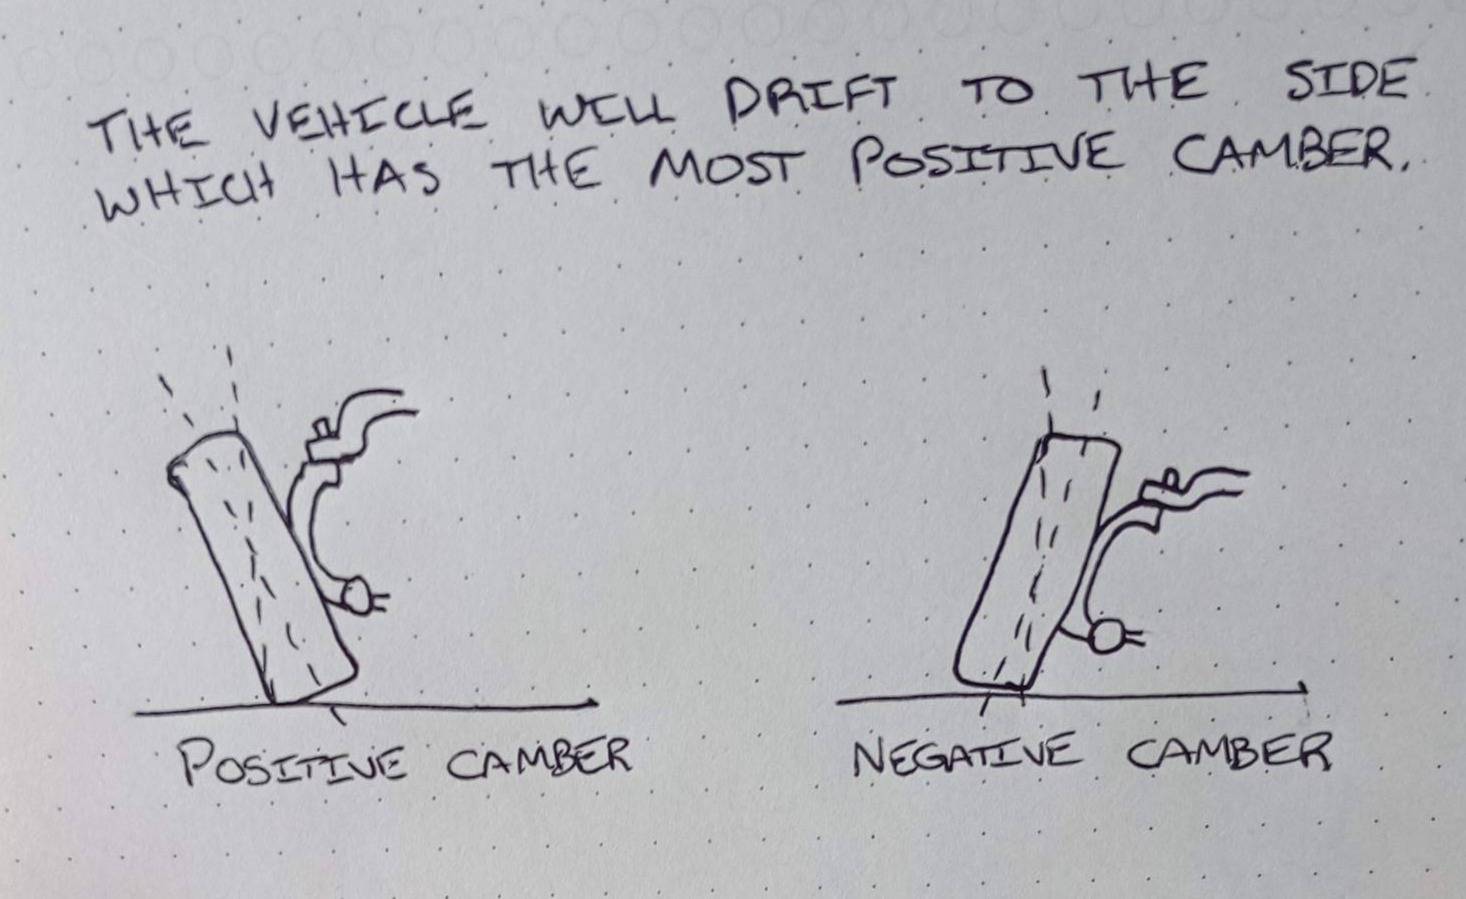 THE VEHICLE WILL DRIFT TO THE SIDE
WHICH HAS THE MOST POSITIVE CAMBER.
POSITIVE CAMBER
NEGATIVE CAMBER